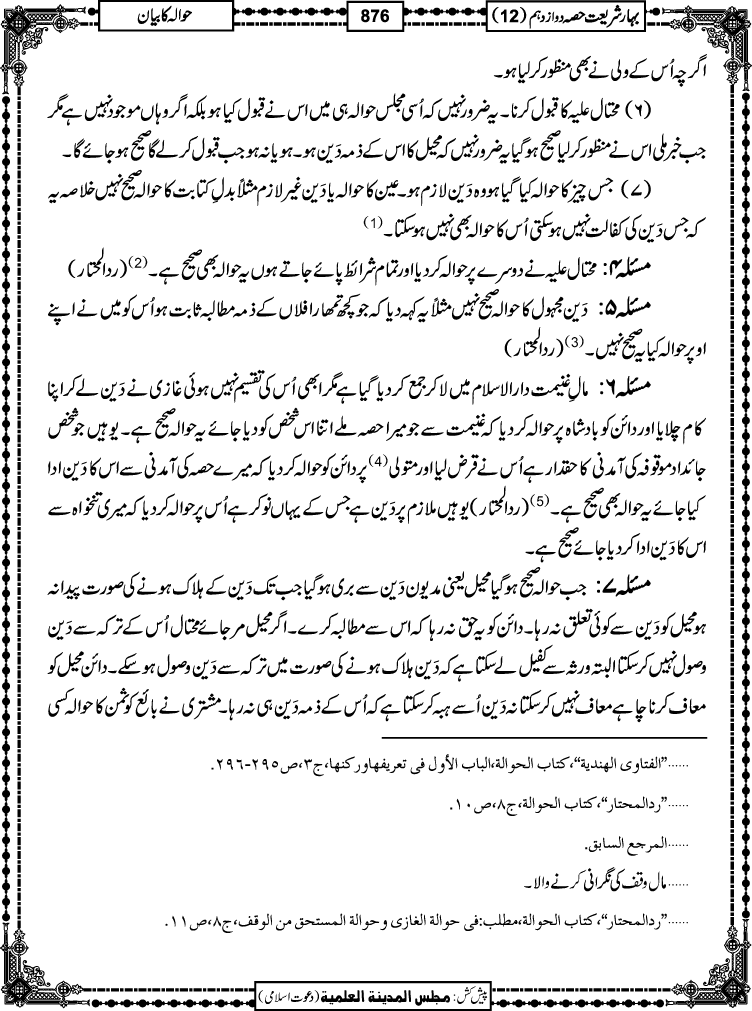 بہارِ شریعت حصہ دوازدہم (12)
876
حوالہ کا بیان
اگرچہ اُس کے ولی نے بھی منظور کرلیا ہو۔
(۶) محتال علیہ کا قبول کرنا۔ یہ ضرور نہیں کہ اُسی مجلس حوالہ ہی میں اس نے قبول کیا ہو بلکہ اگر وہاں موجود نہیں ہے مگر
جب خبر ملی اس نے منظور کرلیا صحیح ہوگیا یہ ضرور نہیں کہ محیل کا اس کے ذمہ دَین ہو۔ ہو یا نہ ہو جب قبول کرلے گا صحیح ہوجائے گا۔
(۷) جس چیز کا حوالہ کیا گیا ہو وہ دَین لازم ہو۔ عین کا حوالہ یا دَین غیر لازم مثلاً بدلِ کتابت کا حوالہ صحیح نہیں خلاصہ یہ
کہ جس دَین کی کفالت نہیں ہوسکتی اُس کا حوالہ بھی نہیں ہوسکتا۔(1)
مسئلہ ۴: محتال علیہ نے دوسرے پر حوالہ کردیا اور تمام شرائط پائے جاتے ہوں یہ حوالہ بھی صحیح ہے۔(2) (ردالمحتار)
مسئلہ ۵: دَین مجہول کا حوالہ صحیح نہیں مثلاً یہ کہہ دیا کہ جو کچھ تمھارا فلاں کے ذمہ مطالبہ ثابت ہو اُس کو میں نے اپنے
اوپر حوالہ کیا یہ صحیح نہیں۔(3) (ردالمحتار)
مسئلہ ۶: مالِ غنیمت دارالاسلام میں لاکر جمع کردیا گیا ہے مگر ابھی اُس کی تقسیم نہیں ہوئی غازی نے دَین لے کر اپنا
کام چلایا اور دائن کو بادشاہ پر حوالہ کردیا کہ غنیمت سے جو میرا حصہ ملے اتنا اس شخص کو دیا جائے یہ حوالہ صحیح ہے۔ یوہیں جو شخص
جائداد موقوفہ کی آمدنی کا حقدار ہے اُس نے قرض لیا اور متولی(4) پر دائن کو حوالہ کردیا کہ میرے حصہ کی آمدنی سے اس کا دَین ادا
کیا جائے یہ حوالہ بھی صحیح ہے۔(5) (ردالمحتار) یوہیں ملازم پر دَین ہے جس کے یہاں نوکر ہے اُس پر حوالہ کردیا کہ میری تنخواہ سے
اس کا دَین ادا کردیا جائے صحیح ہے۔
مسئلہ ۷: جب حوالہ صحیح ہوگیا محیل یعنی مدیون دَین سے بری ہوگیا جب تک دَین کے ہلاک ہونے کی صورت پیدا نہ
ہو محیل کو دَین سے کوئی تعلق نہ رہا۔ دائن کو یہ حق نہ رہا کہ اس سے مطالبہ کرے۔ اگر محیل مرجائے محتال اُس کے ترکہ سے دَین
وصول نہیں کرسکتا البتہ ورثہ سے کفیل لے سکتا ہے کہ دَین ہلاک ہونے کی صورت میں ترکہ سے دَین وصول ہوسکے۔ دائن محیل کو
معاف کرنا چاہے معاف نہیں کرسکتا نہ دَین اُسے ہبہ کرسکتا ہے کہ اُس کے ذمہ دَین ہی نہ رہا۔ مشتری نے بائع کو ثمن کا حوالہ کسی
......”الفتاوی الھندیة“،کتاب الحوالة،الباب الأول فی تعریفھاورکنھا،ج۳،ص۲۹۵-۲۹۶.
......”ردالمحتار“،کتاب الحوالة،ج۸،ص۱۰.
......المرجع السابق.
......مال وقف کی نگرانی کرنے والا۔
......”ردالمحتار“،کتاب الحوالة،مطلب:فی حوالة الغازی وحوالة المستحق من الوقف،ج۸،ص۱۱.
پیش کش: مجلس المدینة العلمیة (دعوت اسلامی)